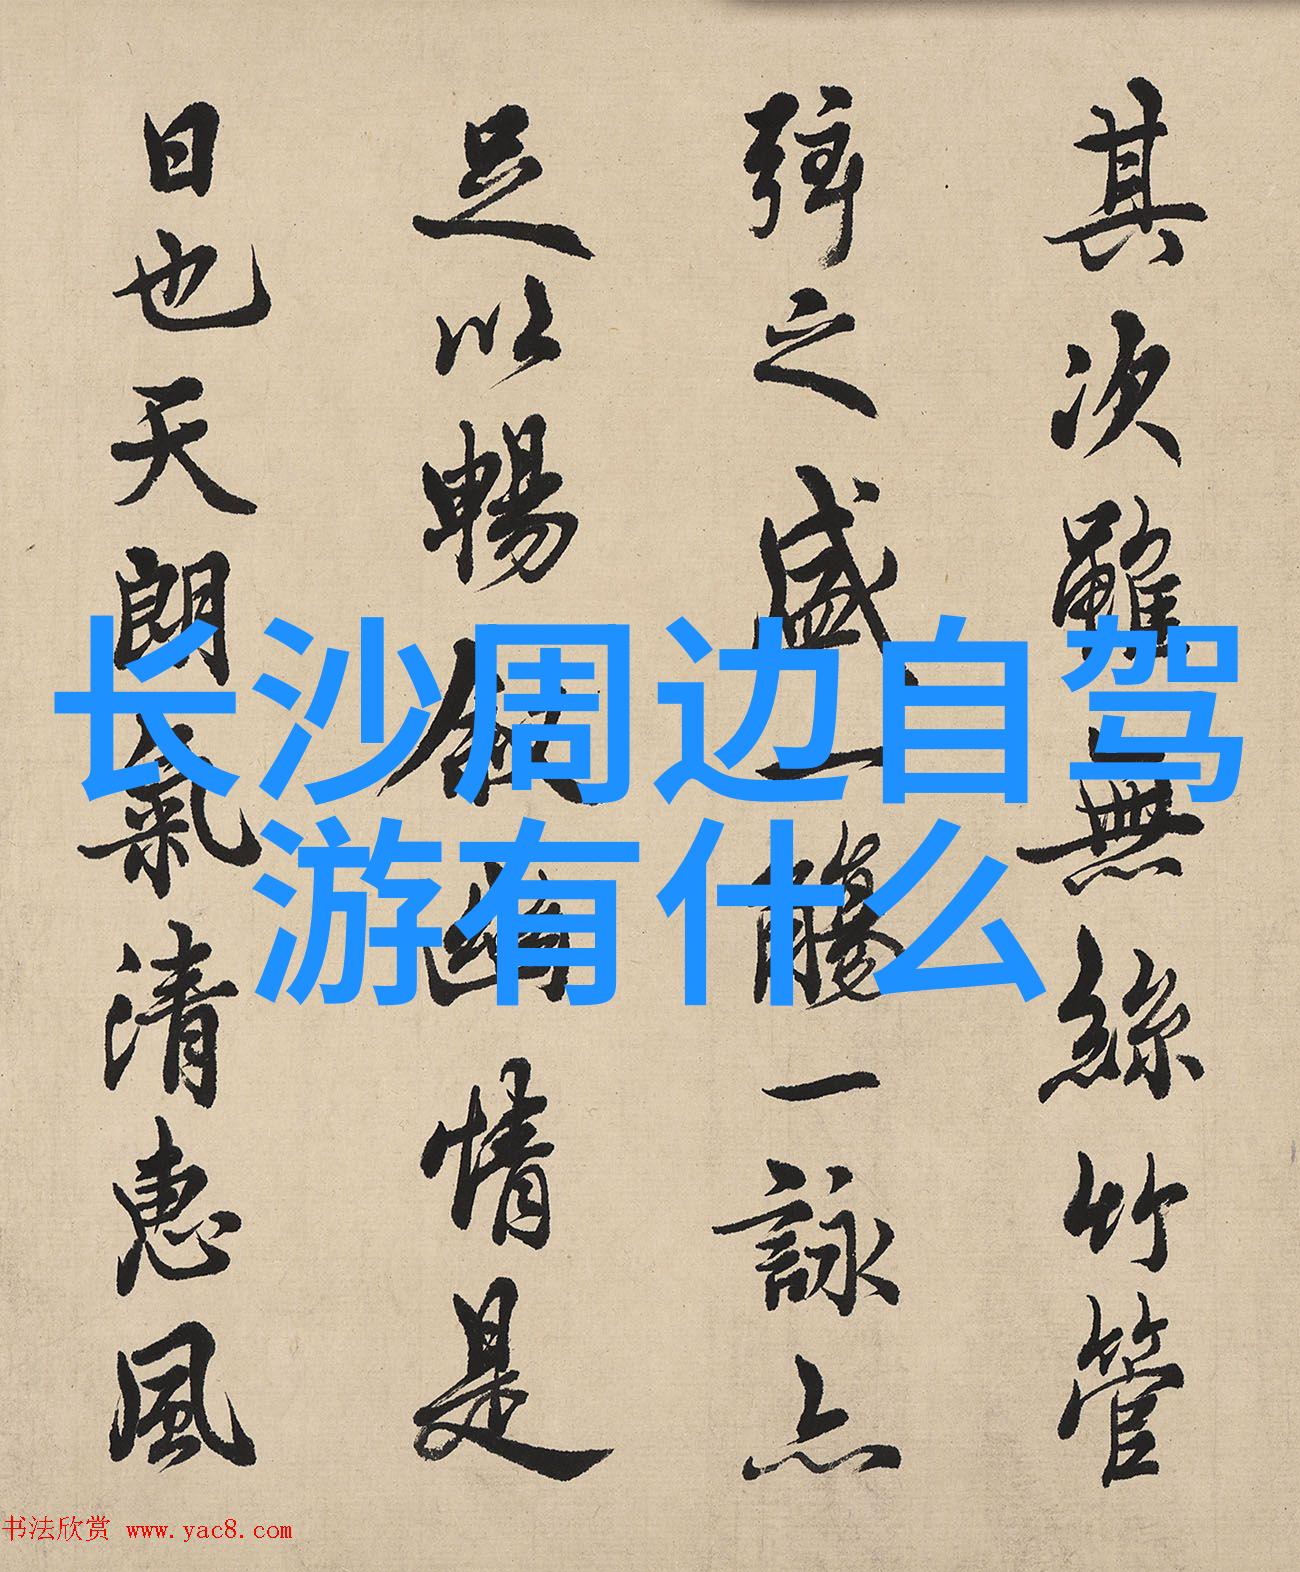 其次雖無絲竹管
弦之盛一觴一詠亦
足以暢敘幽情是
日也天朗氣清惠風
长沙周边自驾
游有什么
书法欣赏 www.yac8.com